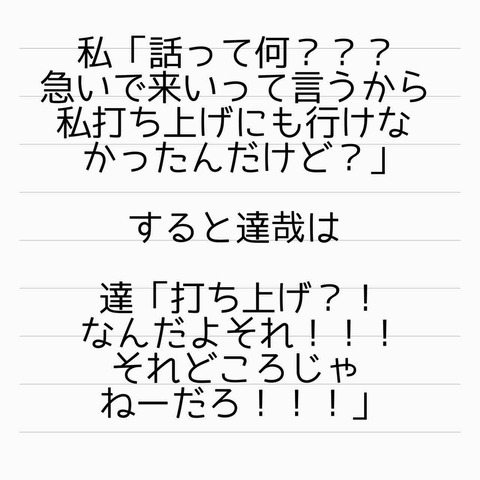 私「話って何？？？
急いで来いって言うから
私打ち上げにも行けな
かったんだけど？」
すると達哉は
達「打ち上げ？！
なんだよそれ！！！
それどころじゃ
ねーだろ！！！」